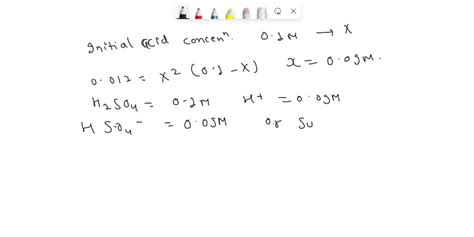 Initial acid concenⁿ. 0.1M → X
0.012 = x² (0.1-x) x = 0.09M.
H₂SO₄ = 0.1M H+ = 0.09M
HSO₄⁻ = 0.09M or Su